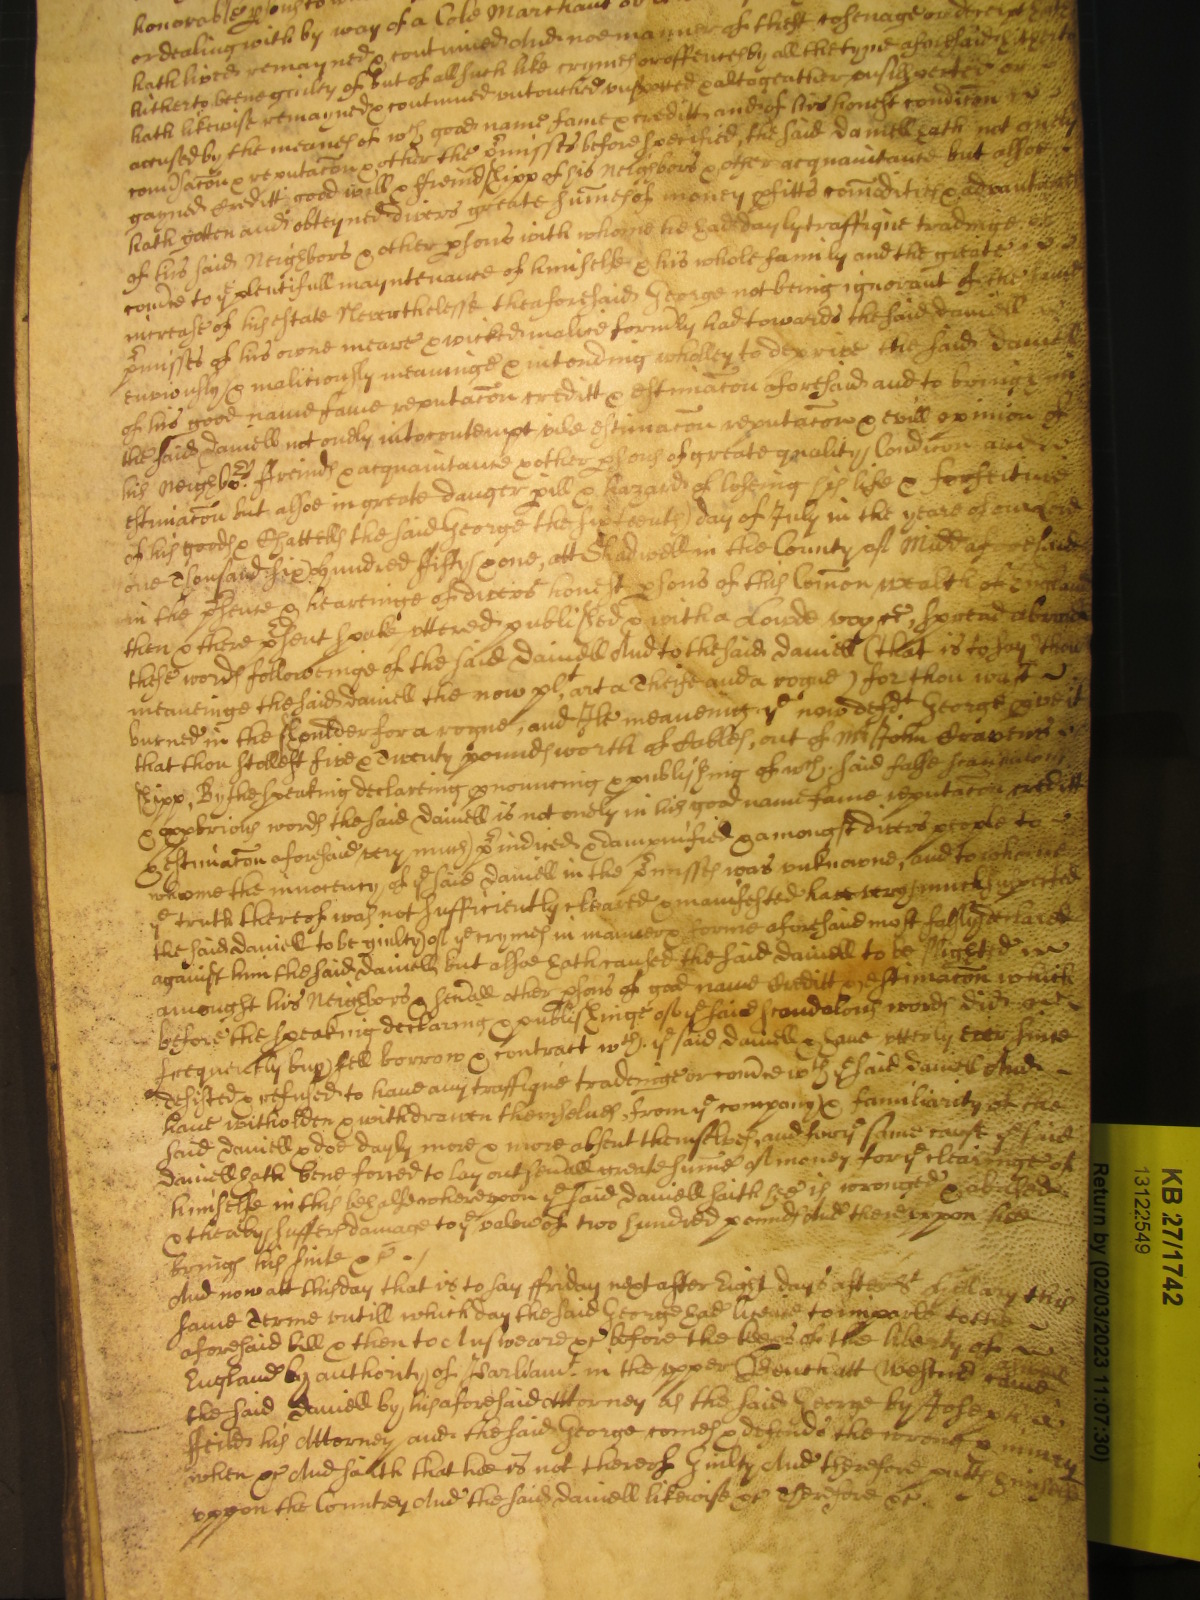 honorable psons to
or dealing with by way of a Cole Marchant or
hath lived remayned & continued And noe manner of theft cosenage or deceipt hath
hitherto beene guilty of But of all such like crymes or offences by all the tyme aforesaid hitherto
hath likewise remayned & continued untouched unspotted & altogeather unsuspected or
accused by the meanes of wch good name fame & creditt and of his honest condicon
convsacon & reputacon & other the pmisses before specified, the said Daniell hath not onely
gayned Creditt good will & ffreindshipp of his Neighbors & other acquaintance but alsoe
hath gotten and obteyned divers greate summes of money pfitts comodities & advantages
of his said Neighbors & other psons with whome he had dayly traffique tradinge &
comce to ye plentifull mayntenance of himselfe & his whole family and the greate
increase of his estate Neverthelesse the aforesaid George not being ignorant of the same
pmisses of his owne meare & wicked malice formerly had towards the said Daniell
enviously & maliciously meaninge & intending wholley to deprive the said Daniell
of his good name fame reputacon creditt & estimacon aforesaid and to bringe him
the said Daniell not onely into contempt vile estimacon reputacon & evill opinion of
his Neighbors ffreinds & acquaintance & other psons of greate quality Condicon and
estimacon but alsoe in greate danger pill & hazard of loseing his life & forfeiture
of his goods & Chattells the said George the sixteenth day of July in the yeare of our Lord
one Thousand six Hundred ffifty & one, att Shadwell in the County of Midd aforesaid
in the psence & heareinge of divers honest psons of this Comon wealth of England
then & there psent spake uttered published & with a Lowde voyce, spread abroad
these words followeinge of the said Daniell And to the said Daniell (that is to say) thou
meaneinge the said Daniell the now plt, art a Theife and a rogue) for thou wast
burned in the shoulder for a rogue, and I he meaneing ye now defdt George give it
that thou stollest five & Twenty pounds worth of Cables, out of Mr John Cravens
shipp, By the speaking declareing pnouncing & publishing of wch said false scandalous
& opprbrious words the said Daniell is not onely in his good name fame reputacon creditt
& estimacon aforesaid very much piudiced & dampnified & amongst divers people to
whome the innocency of ye said Daniell in the pmisses was unknowne, and to whome
ye truth thereof was not sufficiently cleared & manifested hath very much suspected
the said Daniell to be guilty of ye crymes in manner & forme aforesaid most falsly declared
against him the said Daniell, but alsoe hath caused the said Daniell to be slighted
amonght his Neighbors & sevall other psons of good name Creditt & estimacon which
before the speaking declaring & publishinge of ye said scandalous words did
frequently buy sell borrow & contract wth ye said Daniell & have utterly ever since
desisted & refused to have any traffique tradeinge or comce wth ye said Daniell And
have witholden & withdrawen themselves, from ye company & familiarity of the
said Daniell & doe dayly more & more absent themselves, and for ye same cause ye said
Daniell hath bene forced to lay out sevall greate summes of money for ye cleareinge of
himselfe in this behalfe whereupon ye said Daniell saith hee is wronged & abused
& thereby suffers damage to ye valew of two hundred pounds And thereuppon hee
brings his suite &c
And now att this day that is to say ffriday next after Eight days after St Hillary this
same Terme untill which day the said George had licence to imparle to the
aforesaid bill & then to Answeare &c before the keepers of the liberty of
England by authority of Parliamt in the upper Bench att Westmr came aswell
the said Daniell by his aforesaid Attorney as the said George by Joseph
ffeild his Attorney and the said George comes & defends the wrong & iniury
when &c And saith that hee is not thereof Guilty And therefore putts himselfe
uppon the Countrey And the said Daniell likewise &c Therefore &c
KB 27/1742
13122549
Return by (02/03/2023 11:07:30)